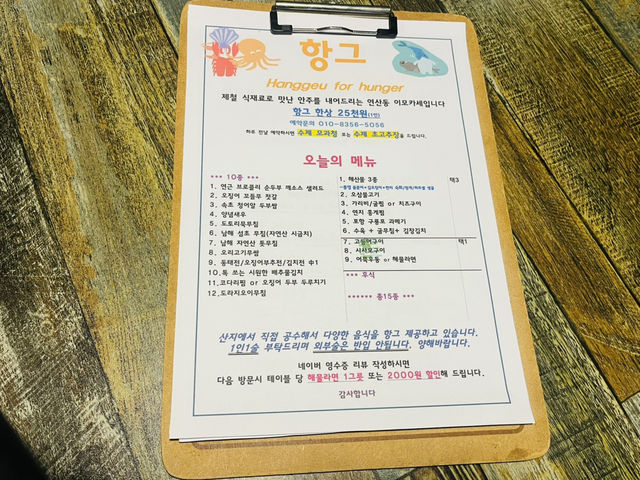 항그
Hanggeu for hunger
제철 식재료로 맛난 안주를 내어드리는 연산동 이모카세입니다
항그 한상 25천원(1인)
예약문의 010-8356-5056
하루 전날 예약하시면 수제 모과청 또는 수제 초고추장을 드립니다.
오늘의 메뉴
*** 10종 ***
1. 연근 브로콜리 순두부 깨소스 샐러드
2. 오징어 꼬들무 젓갈
3. 속초 청어알 두부쌈
4. 양념새우
5. 도토리묵무침
6. 남해 섬초 무침(자연산 시금치)
7. 남해 자연산 톳무침
8. 오리고기무쌈
9. 동태전/오징어부추전/김치전 中1
10. 톡 쏘는 시원한 배추물김치
11. 코다리찜 or 오징어 두부 두루치기
12. 도라지오이무침
1. 해산물 3종 택3
2. 오삼불고기
3. 가리비/굴찜 or 치즈구이
4. 연지 홍게찜
5. 포항 구룡포 과메기
6. 수육 + 굴무침+ 김장김치
7. 고등어구이 택1
8. 사사오구이
9. 어묵우동 or 해물라면
*** 후식
****** 총15종 ***
산지에서 직접 공수해서 다양한 음식을 항그 제공하고 있습니다.
1인1술 부탁드리며 외부술은 반입 안됩니다. 양해바랍니다.
네이버 영수증 리뷰 작성하시면
다음 방문시 테이블 당 해물라면 1그릇 또는 2000원 할인해 드립니다.
감사합니다